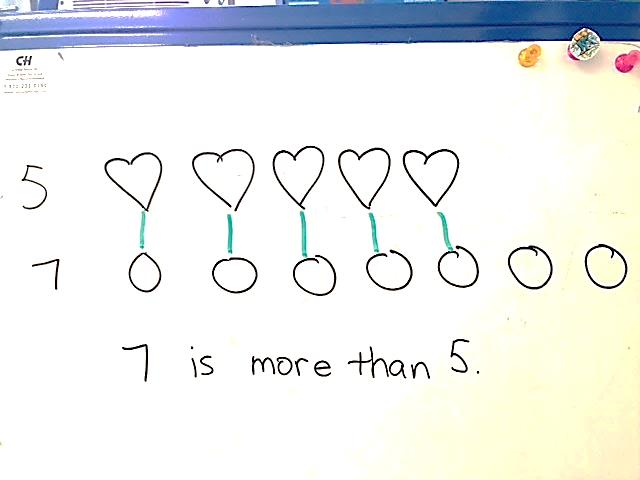 CH
5
7
7 is more than 5.